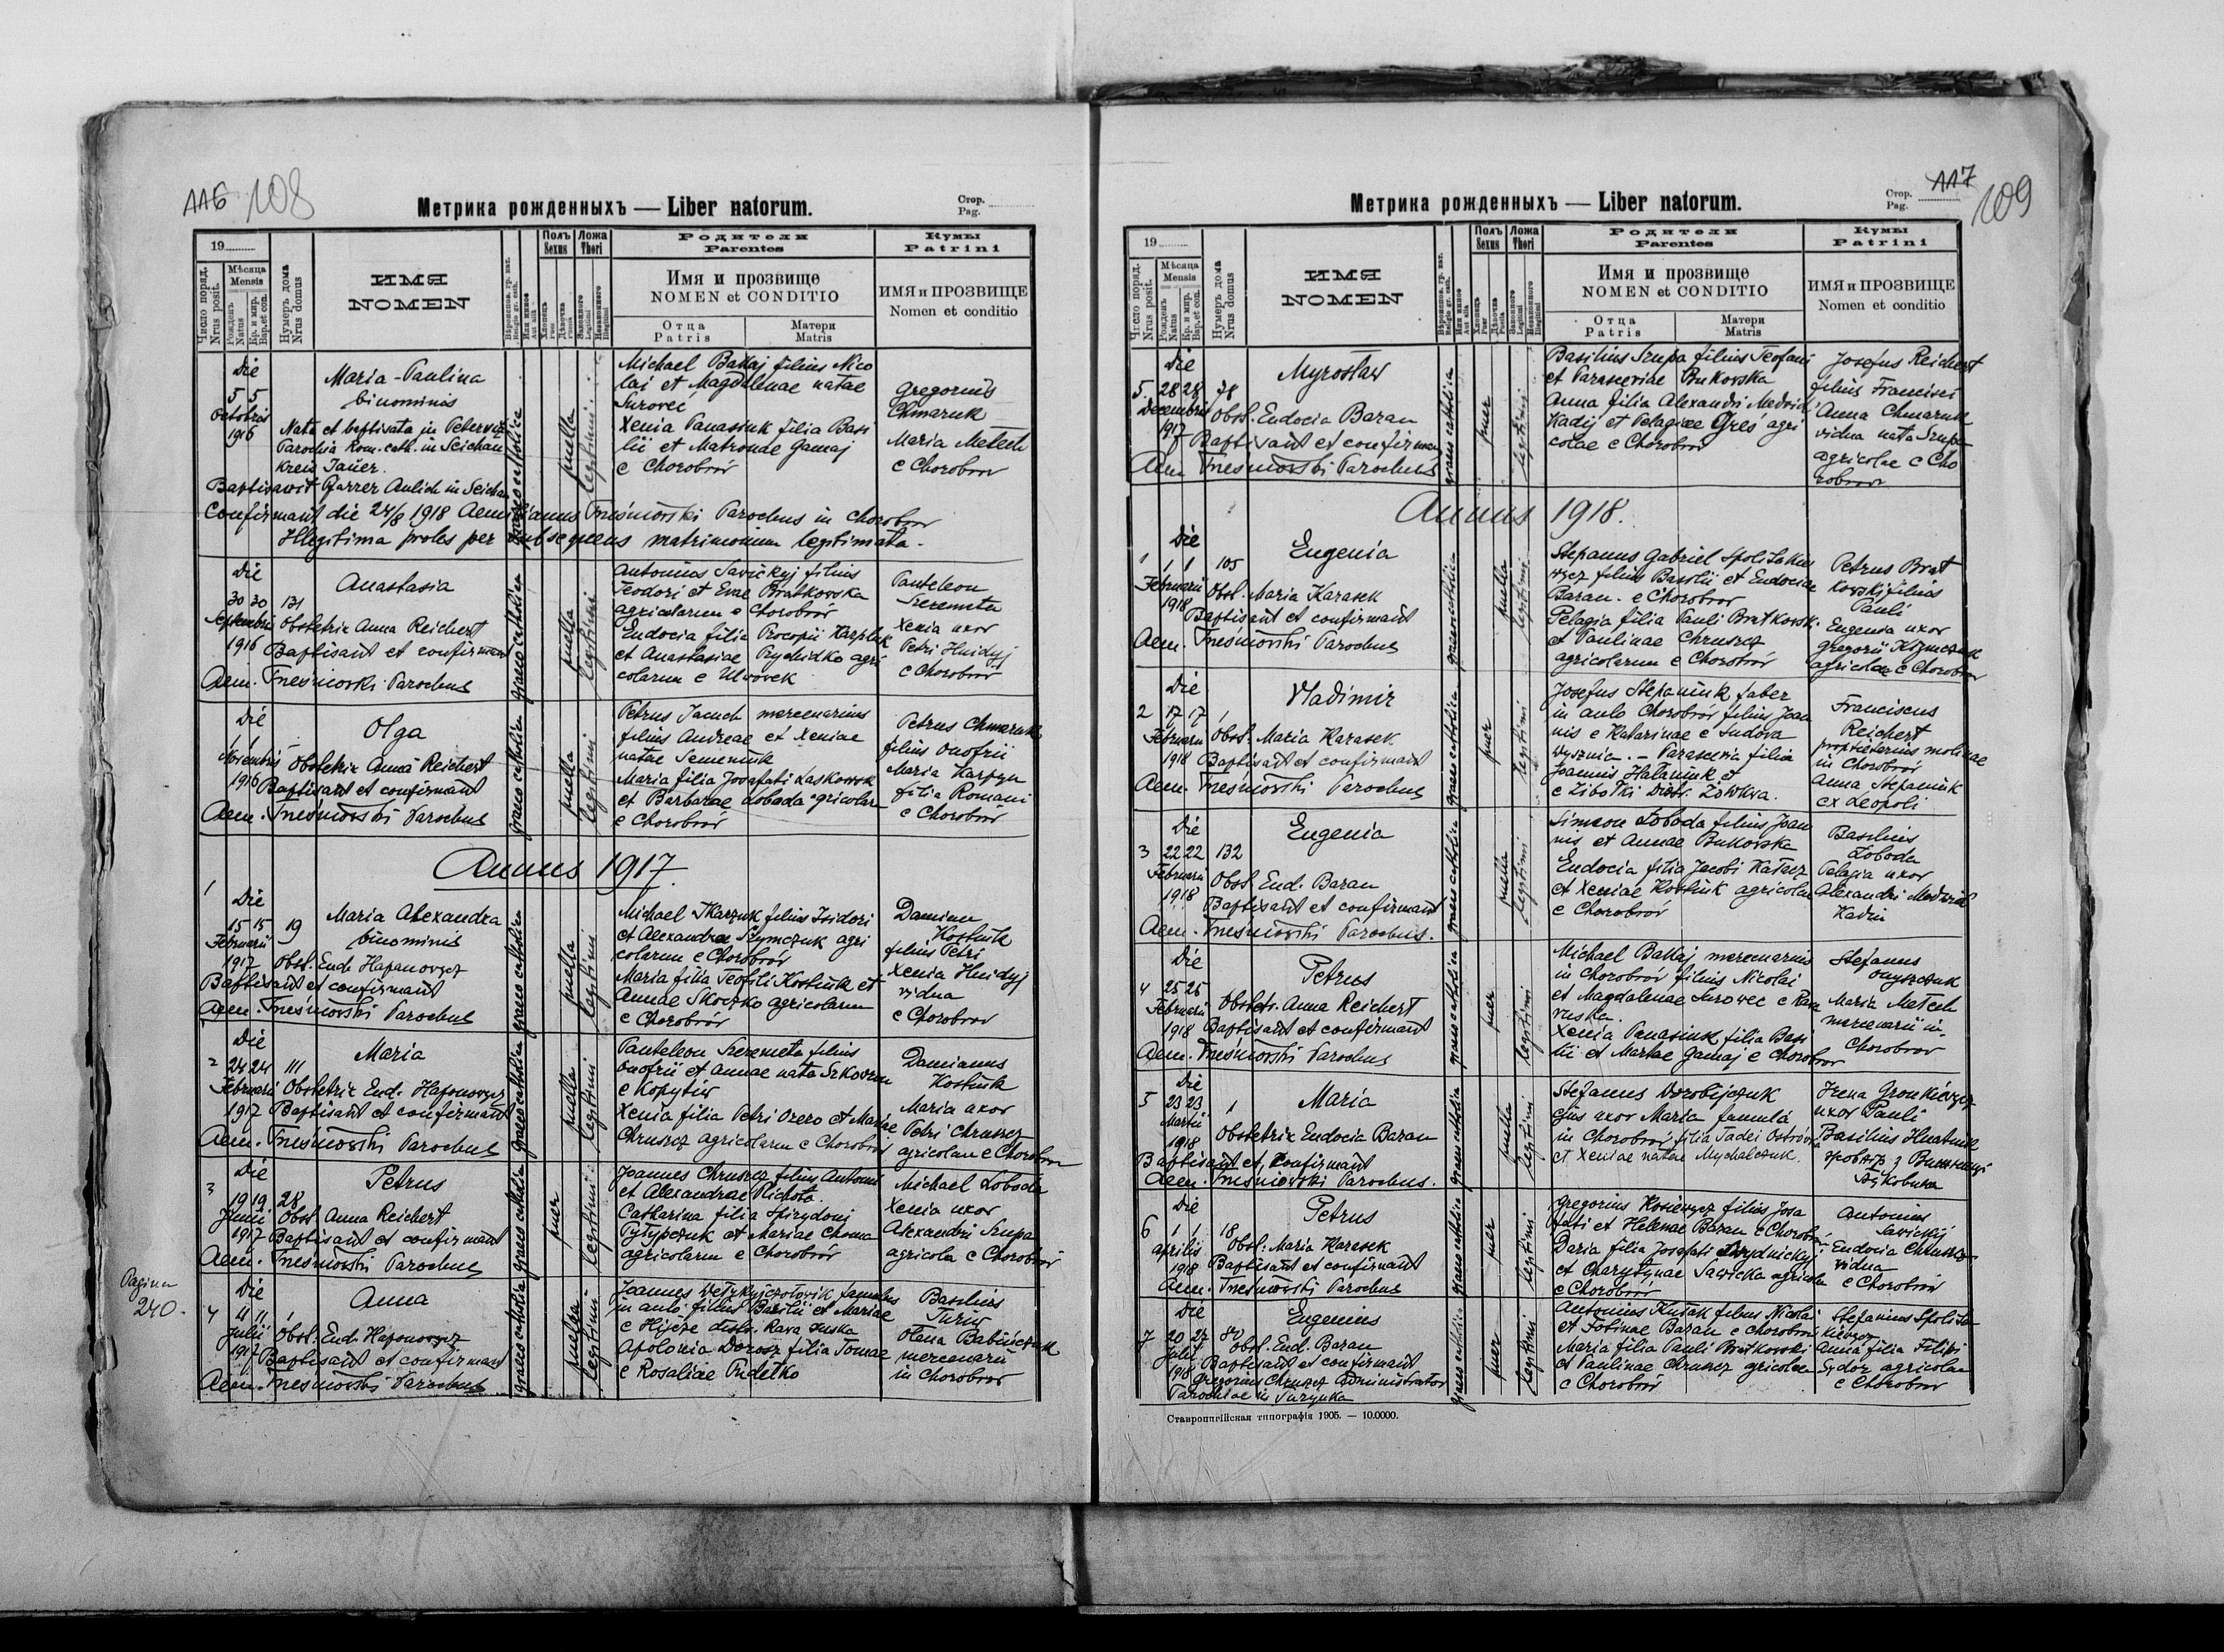 116 108
Метрика рожденныхъ — Liber natorum.
Стор.
Pag.
19
Число поряд.
Nrus posit.
Мѣсяца
Mensis
Рожденъ
Natus
Кр. и мир.
Bap. et con.
Нумеръ дома
Nrus domus
ИМЯ
NOMEN
Вѣроиспов. гр. кат.
Religio gr. cath.
Или инное
Aut alia
Полъ
Sexus
Хлопецъ
Puer
Дѣвочка
Puella
Ложа
Thori
Законного
Legitimi
Незаконного
Illegitimi
Родители
Parentes
Имя и прозвище
NOMEN et CONDITIO
Отца
Patris
Матери
Matris
Кумы
Patrini
ИМЯ и ПРОЗВИЩЕ
Nomen et conditio
Die
5 5
Octobris
1916
Maria-Paulina
binominis
Nata et baptisata in
Parochia Rom. cath. in Seichau
Kreis Jauer.
Baptisavit Pfarrer Aulich in Seichau
graeco catholica
puella
legitimi
Michael Bałłaj filius Nico
lai et Magdalenae natae
Surowec
Xenia Panasiuk filia Basi
lii et Matronae Gamaj
e Chorobrów
Gregorius
Chmaruk
Maria Metech
e Chorobrow
Confirmavit die 24/8 1918 Aemilianus Tneśniowski Parochus in Chorobrow
Illegitima proles per subsequens matrimonium legitimata.
Die
30 30 131
Septembris
1916
Anastasia
Obstetrix Anna Reichert
Baptisavit et confirmavit
Aem. Tneśniowski Parochus
graeco catholica
puella
legitimi
Antonius Savickyj filius
Teodori et Evae Bratkowska
agricolarum e Chorobrów
Eudocia filia Procopii Karpluk
et Anastasiae Prychidko agri
colarum e Ulwówek
Panteleon
Szeremeta
Xenia uxor
Petri Hnidyj
e Chorobrów
Die
1 1
Novembris
1916
Olga
Obstetrix Anna Reichert
Baptisavit et confirmavit
Aem. Tneśniowski Parochus
graeco catholica
puella
legitimi
Petrus Jacuch mercenarius
filius Andreae et Xeniae
natae Semeniuk
Maria filia Josafati Laskowsk
et Barbarae Łoboda agricolar
e Chorobrów
Petrus Chmaruk
filius Onofrii
Maria Karpyn
filia Romani
e Chorobrow
Annus 1917.
1 Die
15 15 19
Februarii
1917
Maria Alexandra
binominis
Obst. Eud. Haponowycz
Baptisavit et confirmavit
Aem. Tneśniowski Parochus
graeco catholica
puella
legitimi
Michael Tkaczuk filius Isidori
et Alexandrae Szymczuk agri
colarum e Chorobrów
Maria filia Teofili Kostiuk et
Annae Skoczko agricolarum
e Chorobrów
Damian
Kostiuk
filius Petri
Xenia Hnidyj
vidua
e Chorobrow
Die
2 24 24 111
Februarii
1917
Maria
Obstetrix Eud. Haponowycz
Baptisavit et confirmavit
Aem. Tneśniowski Parochus
graeco catholica
puella
legitimi
Panteleon Szeremeta filius
Onofrii et Annae nata
e Kopytiw
Xenia filia Petri Ozero et Mariae
Chruszcz agricolarum e Chorobrów
Damianus
Kostiuk
Maria uxor
Petri Chruszcz
agricolae e Chorobrow
Die
3 19 19 28
Junii
1917
Petrus
Obst. Anna Reichert
Baptisavit et confirmavit
Aem. Tneśniowski Parochus
graeco catholica
puer
legitimi
Joannes Chruszcz filius Antonii
et Alexandrae Plichota.
Catharina filia Spirydoni
Pytypczuk et Mariae Choma
agricolarum e Chorobrów
Michael Łoboda
Xenia uxor
Alexandri Szupa
agricola e Chorobrów
Pagina
240.
Die
4 11 11 1
Julii
1917
Anna
Obst. Eud. Haponowycz
Baptisavit et confirmavit
Aem. Tneśniowski Parochus
graeco catholica
puella
legitimi
Joannes famulus
in aulo filius Basilii et Mariae
e Hijcze distr. Rava ruska
Apolonia Dorosz filia Tomae
e Rosaliae Pudełko
Basilius
Turiw
Olena Babińczuk
mercenarii
in Chorobrow
117
109
Метрика рожденныхъ — Liber natorum.
Стор.
Pag.
19
Число поряд.
Nrus posit.
Мѣсяца
Mensis
Рожденъ
Natus
Кр. и мир.
Bap. et con.
Нумеръ дома
Nrus domus
ИМЯ
NOMEN
Вѣроиспов. гр. кат.
Religio gr. cath.
Или инное
Aut alia
Полъ
Sexus
Хлопецъ
Puer
Дѣвочка
Puella
Ложа
Thori
Законного
Legitimi
Незаконного
Illegitimi
Родители
Parentes
Имя и прозвище
NOMEN et CONDITIO
Отца
Patris
Матери
Matris
Кумы
Patrini
ИМЯ и ПРОЗВИЩЕ
Nomen et conditio
Die
5. 28 28 38
Decembris
1917
Myrosław
Obst. Eudocia Baran
Baptisavit et confirmav
Aem Tneśniowski Parochus
graeco catholica
puer
legitimi
Basilius Szupa filius Teofani
et Parasceviae Bukowska
Anna filia Alexandri Medvid
Kadij et Pelagiae Gres agri
colae e Chorobrow
Josefus Reichert
filius Francisci
Anna Chmaruk
vidua nata Szupa
agricolae e Cho
robrow
Annus 1918.
Die
1 1 1 105
Februarii
1918
Eugenia
Obst. Maria Karasek
Baptisavit et confirmavit
Aem. Tneśniowski Parochus
graeco catholica
puella
legitimi
Stepanus Gabriel Spolitakie
wycz filius Basilii et Eudociae
Baran. e Chorobrow
Pelagia filia Pauli Bratkowski
et Paulinae Chruszcz
agricolarum e Chorobrów
Petrus Brat
kowski filius
Pauli
Eugenia uxor
Gregorii Klymczuk
agricolae e Chorobrow
Die
2 17 17 1
Februarii
1918
Vladimir
Obst. Maria Karasek
Baptisavit et confirmavit
Aem. Tneśniowski Parochus
graeco catholica
puer
legitimi
Josefus Stepaniuk faber
in aulo Chorobrów filius Joan
nis e Katarinae e Sudova
Wysznia. — Parascevia filia
Joannis Hałaniuk et
e Libotki Distr. Żółkwa.
Franciscus
Reichert
proprietarius molinae
in Chorobrów
Anna Stepaniuk
ex Leopoli
Die
3 22 22 132
Februarii
1918
Eugenia
Obst. Eud. Baran
Baptisavit et confirmavit
Aem. Tneśniowski Parochus.
graeco catholica
puella
legitimi
Simeon Łoboda filius Joan
nis et Annae Bukowska
Eudocia filia Jacobi Kałasz
et Xeniae Kostiuk agricolae
e Chorobrów
Basilius
Łoboda
Pelagia uxor
Alexandri Medwid
Kadii
Die
4 25 25
Februarii
1918
Petrus
Obstetr. Anna Reichert
Baptisavit et confirmavit
Aem. Tneśniowski Parochus
graeco catholica
puer
legitimi
Michael Bałłaj mercenarius
in Chorobrów filius Nicolai
et Magdalenae Surowec e Rava
ruska.
Xenia Panasiuk filia Basi
lii et Martae Gamaj e Chorobrow
Stefanus
Onyszczuk
Maria Metech
mercenarii in
Chorobrow
Die
5 23 23 1
Martii
1918
Maria
Obstetrix Eudocia Baran
Baptisavit et confirmavit
Aem. Tneśniowski Parochus.
graeco catholica
puella
legitimi
Stefanus Worobijczuk
ejus uxor Maria famula
in Chorobrów filia Tadei Ostrów
et Xeniae natae Mychalczuk.
Irena Gronkiewicz
uxor Pauli
Basilius Hnatiuk
Die
6 1 1 18
Aprilis
1918
Petrus
Obst. Maria Karasek
Baptisavit et confirmavit
Aem. Tneśniowski Parochus
graeco catholica
puer
legitimi
Gregorius Kosiewycz filius Josa
fati et Helenae Baran e Chorobrów
Daria filia Josafati
et Charytynae Sawicka agricolae
e Chorobrów
Antonius
Savickij
Eudocia Chruszcz
vidua
e Chorobrów
Die
7 20 27 80
Julii
1918
Eugenius
Obst. Eud. Baran
Baptisavit et confirmavit
Gregorius Chruszcz Administrator
Parochiae in Turynka
graeco catholica
puer
legitimi
Antonius filius Nicolai
et Fotinae Baran e Chorobrów
Maria filia Pauli Bratkowski
et Paulinae Chruszcz agricolae
e Chorobrów
Stefanius Spolita
kiewycz
Anna filia Filipi
Sydor agricolae
e Chorobrow
Ставропигійская типографія 1905. — 10.0000.